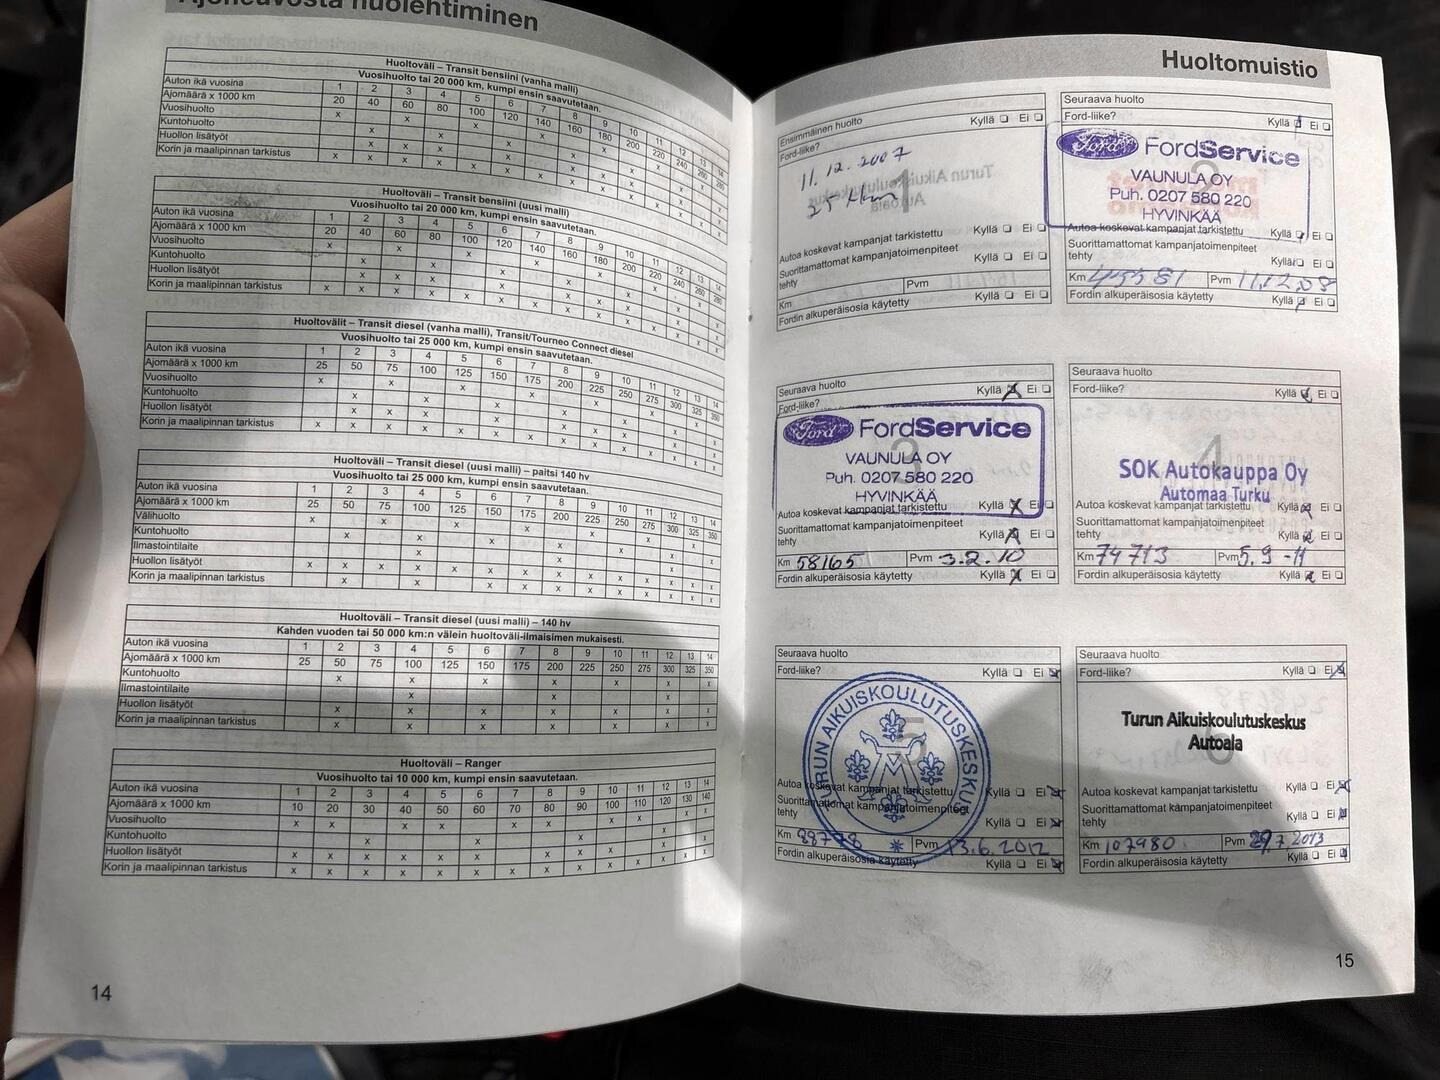 Ajoneuvosta huolehtiminen
Huoltoväli – Transit bensiini (vanha malli)
Vuosihuolto tai 20 000 km, kumpi ensin saavutetaan.
Auton ikä vuosina 1 2 3 4 5 6 7 8 9 10 11 12 13 14
Ajomäärä x 1000 km 20 40 60 80 100 120 140 160 180 200 220 240 260 280
Vuosihuolto
Kuntohuolto
Huollon lisätyöt
Korin ja maalipinnan tarkistus
Huoltoväli – Transit bensiini (uusi malli)
Vuosihuolto tai 20 000 km, kumpi ensin saavutetaan.
Auton ikä vuosina 1 2 3 4 5 6 7 8 9 10 11 12 13 14
Ajomäärä x 1000 km 20 40 60 80 100 120 140 160 180 200 220 240 260 280
Vuosihuolto
Kuntohuolto
Huollon lisätyöt
Korin ja maalipinnan tarkistus
Huoltovälit – Transit diesel (vanha malli), Transit/Tourneo Connect diesel
Vuosihuolto tai 25 000 km, kumpi ensin saavutetaan.
Auton ikä vuosina 1 2 3 4 5 6 7 8 9 10 11 12 13 14
Ajomäärä x 1000 km 25 50 75 100 125 150 175 200 225 250 275 300 325 350
Vuosihuolto
Kuntohuolto
Huollon lisätyöt
Korin ja maalipinnan tarkistus
Huoltoväli – Transit diesel (uusi malli) – paitsi 140 hv
Vuosihuolto tai 25 000 km, kumpi ensin saavutetaan.
Auton ikä vuosina 1 2 3 4 5 6 7 8 9 10 11 12 13 14
Ajomäärä x 1000 km 25 50 75 100 125 150 175 200 225 250 275 300 325 350
Välihuolto
Kuntohuolto
Ilmastointilaite
Huollon lisätyöt
Korin ja maalipinnan tarkistus
Huoltoväli – Transit diesel (uusi malli) – 140 hv
Kahden vuoden tai 50 000 km:n välein huoltoväli-ilmaisimen mukaisesti.
Auton ikä vuosina 1 2 3 4 5 6 7 8 9 10 11 12 13 14
Ajomäärä x 1000 km 25 50 75 100 125 150 175 200 225 250 275 300 325 350
Kuntohuolto
Ilmastointilaite
Huollon lisätyöt
Korin ja maalipinnan tarkistus
Huoltoväli – Ranger
Vuosihuolto tai 10 000 km, kumpi ensin saavutetaan.
Auton ikä vuosina 1 2 3 4 5 6 7 8 9 10 11 12 13 14
Ajomäärä x 1000 km 10 20 30 40 50 60 70 80 90 100 110 120 130 140
Vuosihuolto
Kuntohuolto
Huollon lisätyöt
Korin ja maalipinnan tarkistus
14
Huoltomuistio
Ensimmäinen huolto
Ford-liike? Kyllä Ei
11.12.2007
1
Autoa koskevat kampanjat tarkistettu Kyllä Ei
Suorittamattomat kampanjatoimenpiteet
tehty Kyllä Ei
Km Pvm
Fordin alkuperäisosia käytetty Kyllä Ei
Seuraava huolto
Ford-liike? Kyllä Ei
Ford FordService
VAUNULA OY
Puh. 0207 580 220
HYVINKÄÄ
Autoa koskevat kampanjat tarkistettu Kyllä Ei
Suorittamattomat kampanjatoimenpiteet
tehty Kyllä Ei
Km Pvm 11.12.08
Fordin alkuperäisosia käytetty Kyllä Ei
Seuraava huolto
Ford-liike? Kyllä Ei
Ford FordService
3
VAUNULA OY
Puh. 0207 580 220
HYVINKÄÄ
Autoa koskevat kampanjat tarkistettu Kyllä Ei
Suorittamattomat kampanjatoimenpiteet
tehty Kyllä Ei
Km 58165 Pvm 3.2.10
Fordin alkuperäisosia käytetty Kyllä Ei
Seuraava huolto
Ford-liike? Kyllä Ei
4
SOK Autokauppa Oy
Automaa Turku
Autoa koskevat kampanjat tarkistettu Kyllä Ei
Suorittamattomat kampanjatoimenpiteet
tehty Kyllä Ei
Km 74713 Pvm 5.9 -11
Fordin alkuperäisosia käytetty Kyllä Ei
Seuraava huolto
Ford-liike? Kyllä Ei
TURUN AIKUISKOULUTUSKESKUS
5
Autoa koskevat kampanjat tarkistettu Kyllä Ei
Suorittamattomat kampanjatoimenpiteet
tehty Kyllä Ei
Km 88778 Pvm 13.6.2012
Fordin alkuperäisosia käytetty Kyllä Ei
Seuraava huolto
Ford-liike? Kyllä Ei
Turun Aikuiskoulutuskeskus
Autoala
6
Autoa koskevat kampanjat tarkistettu Kyllä Ei
Suorittamattomat kampanjatoimenpiteet
tehty Kyllä Ei
Km 107980 Pvm 29.7.2013
Fordin alkuperäisosia käytetty Kyllä Ei
15